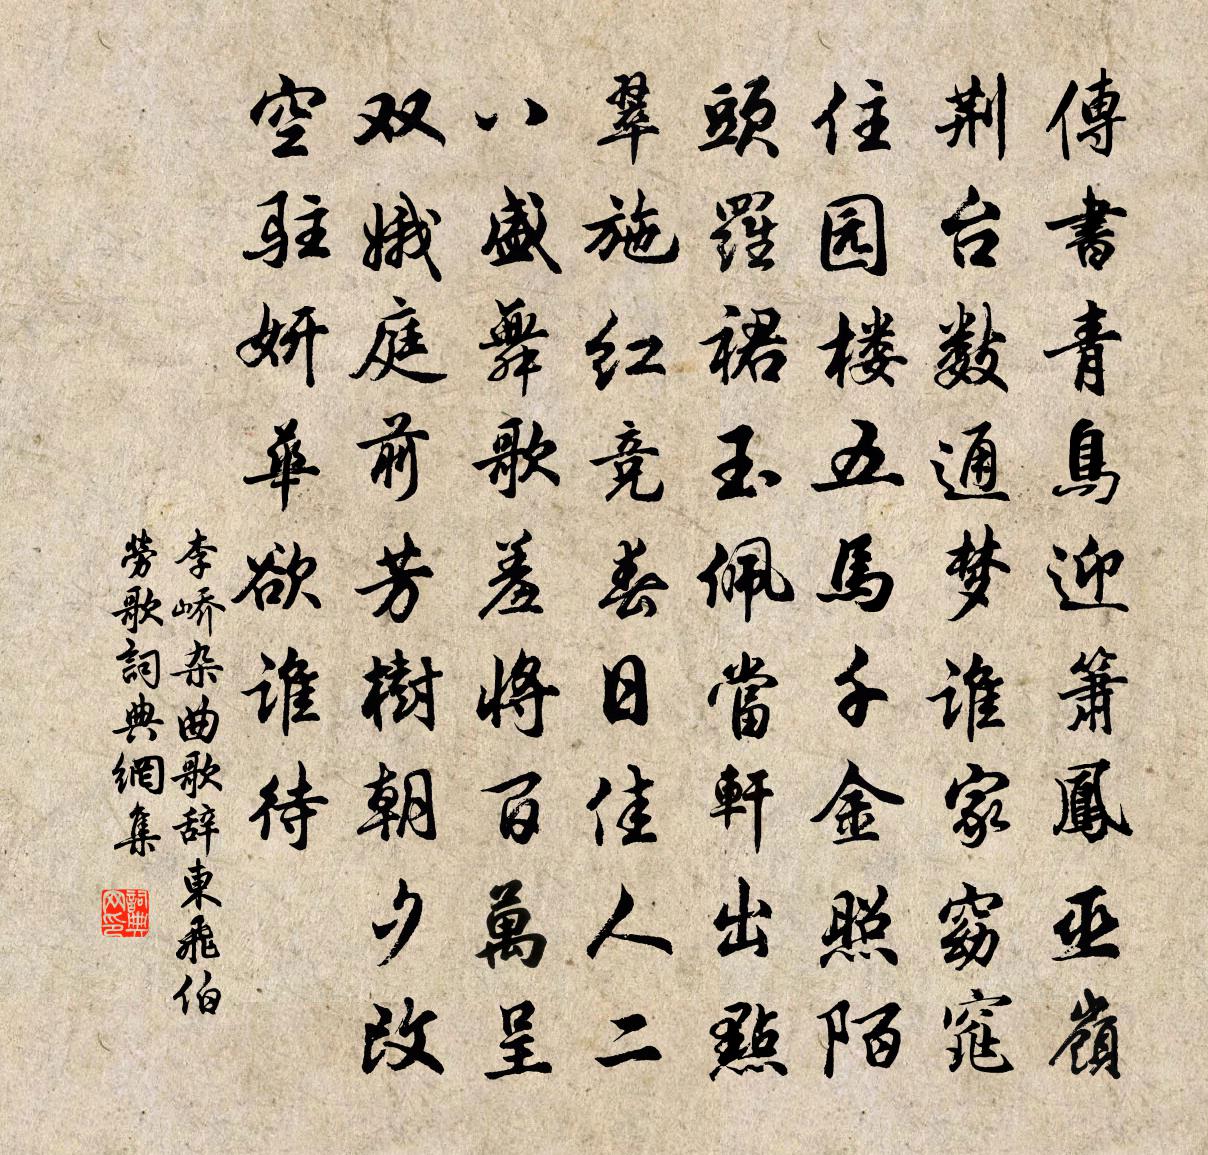 傳書青鳥迎簫鳳巫嶺
荆台数通梦谁家窈窕
住园楼五馬千金照陌
頭羅裙玉佩當軒出點
翠施红竞春日佳人二
八盛舞歌羞将百萬呈
双娥庭前芳樹朝夕改
空驻妍華欲谁待
李嶠杂曲歌辞東飛伯
勞歌詞典網集
詞典
网印